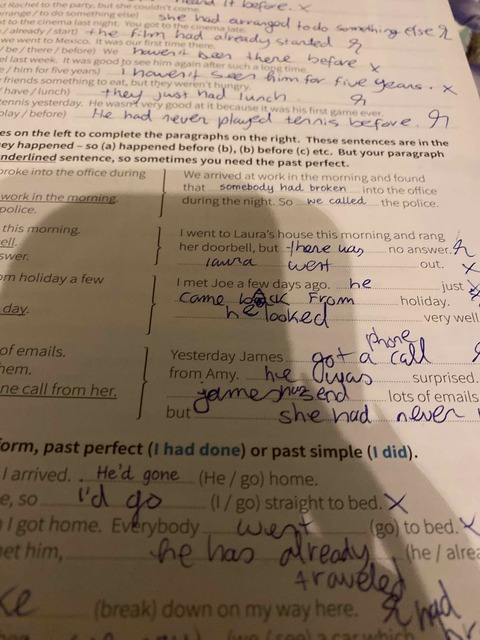 Rachel to the party, but she couldn't come.
heard it before. x
arrange / to do something else)
she had arranged to do something else
to the cinema last night. You got to the cinema late.
/ already / start) the film had already started
we went to Mexico. It was our first time there.
be / there / before) We haven't been there before x
last week. It was good to see him again after such a long time.
e / him for five years) I haven't seen him for five years. x
friends something to eat, but they weren't hungry.
have / lunch) they just had lunch
tennis yesterday. He wasn't very good at it because it was his first game ever.
play / before) He had never played tennis before.
es on the left to complete the paragraphs on the right. These sentences are in the
ey happened – so (a) happened before (b), (b) before (c) etc. But your paragraph
underlined sentence, so sometimes you need the past perfect.
broke into the office during
We arrived at work in the morning and found
that somebody had broken into the office
work in the morning.
during the night. So we called the police.
police.
this morning.
I went to Laura's house this morning and rang
ell.
her doorbell, but there was no answer.
swer.
laura went out. x
om holiday a few
I met Joe a few days ago. he just
came back From holiday.
day.
he looked very well
of emails.
Yesterday James got a phone call
hem.
from Amy. he was surprised.
ne call from her.
lots of emails
but she had never
form, past perfect (I had done) or past simple (I did).
I arrived. He'd gone (He / go) home.
e, so I'd go (I / go) straight to bed. x
I got home. Everybody went (go) to bed. x
met him, he has already (he / alrea
traveled
ke (break) down on my way here. had